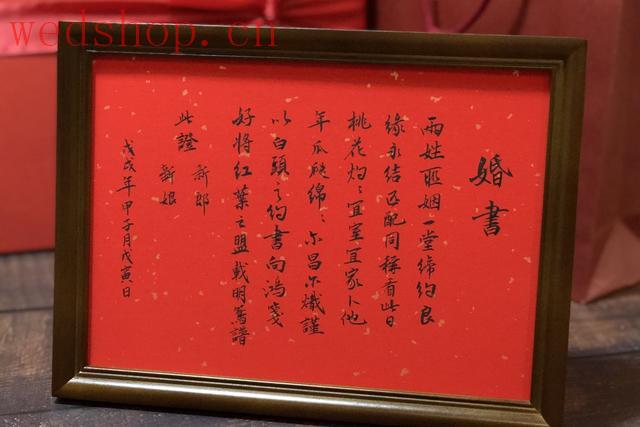 wedshop.cn
婚書
兩姓聯姻一堂締約良
緣永结匹配同稱看此日
桃花灼〻宜室宜家卜他
年瓜瓞綿〻尔昌尔熾謹
以白頭之约書向鴻箋
好將紅葉之盟載明鴛譜
此證
新郎
新娘
戊戌年甲子月戊寅日